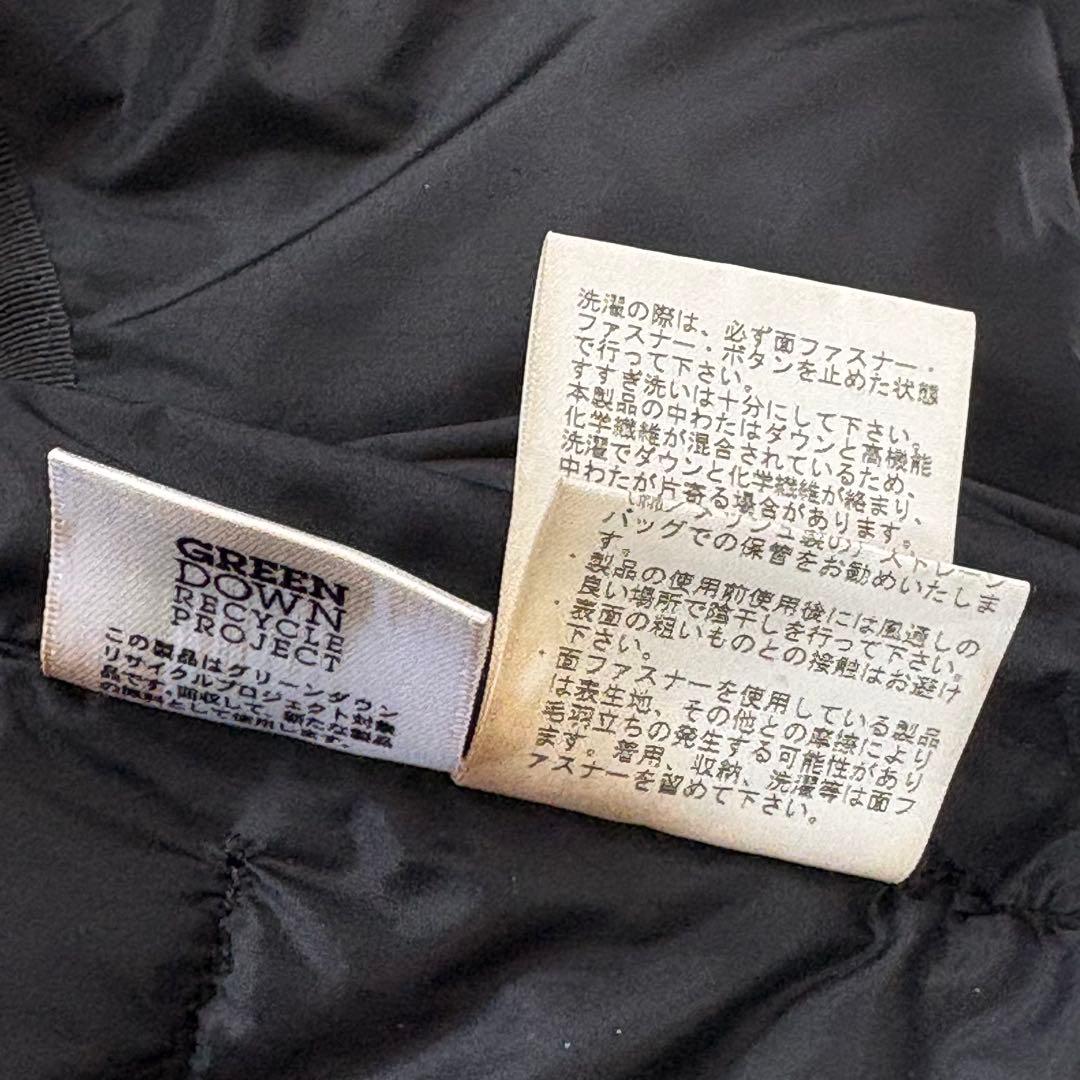 GREEN
DOWN
RECYCLE
PROJECT
この製品はグリーンダウン
リサイクルプロジェクト対象
品です。回収して、新たな製品
の原料として使用します。
洗濯の際は、必ず面ファスナー・
ファスナー・ボタンを止めた状態
で行って下さい。
すすぎ洗いは十分にして下さい。
本製品の中わたはダウンと高機能
化学繊維が混合されているため、
洗濯でダウンと化学繊維が絡まり、
中わたが片寄る場合があります。
バッグでの保管をお勧めいたしま
す。
・製品の使用前使用後には風通しの
良い場所で陰干しを行って下さい。
・表面の粗いものとの接触はお避け
下さい。
・面ファスナーを使用している製品
は表生地、その他との摩擦により
毛羽立ちの発生する可能性があり
ます。着用、収納、洗濯等は面フ
ァスナーを留めて下さい。